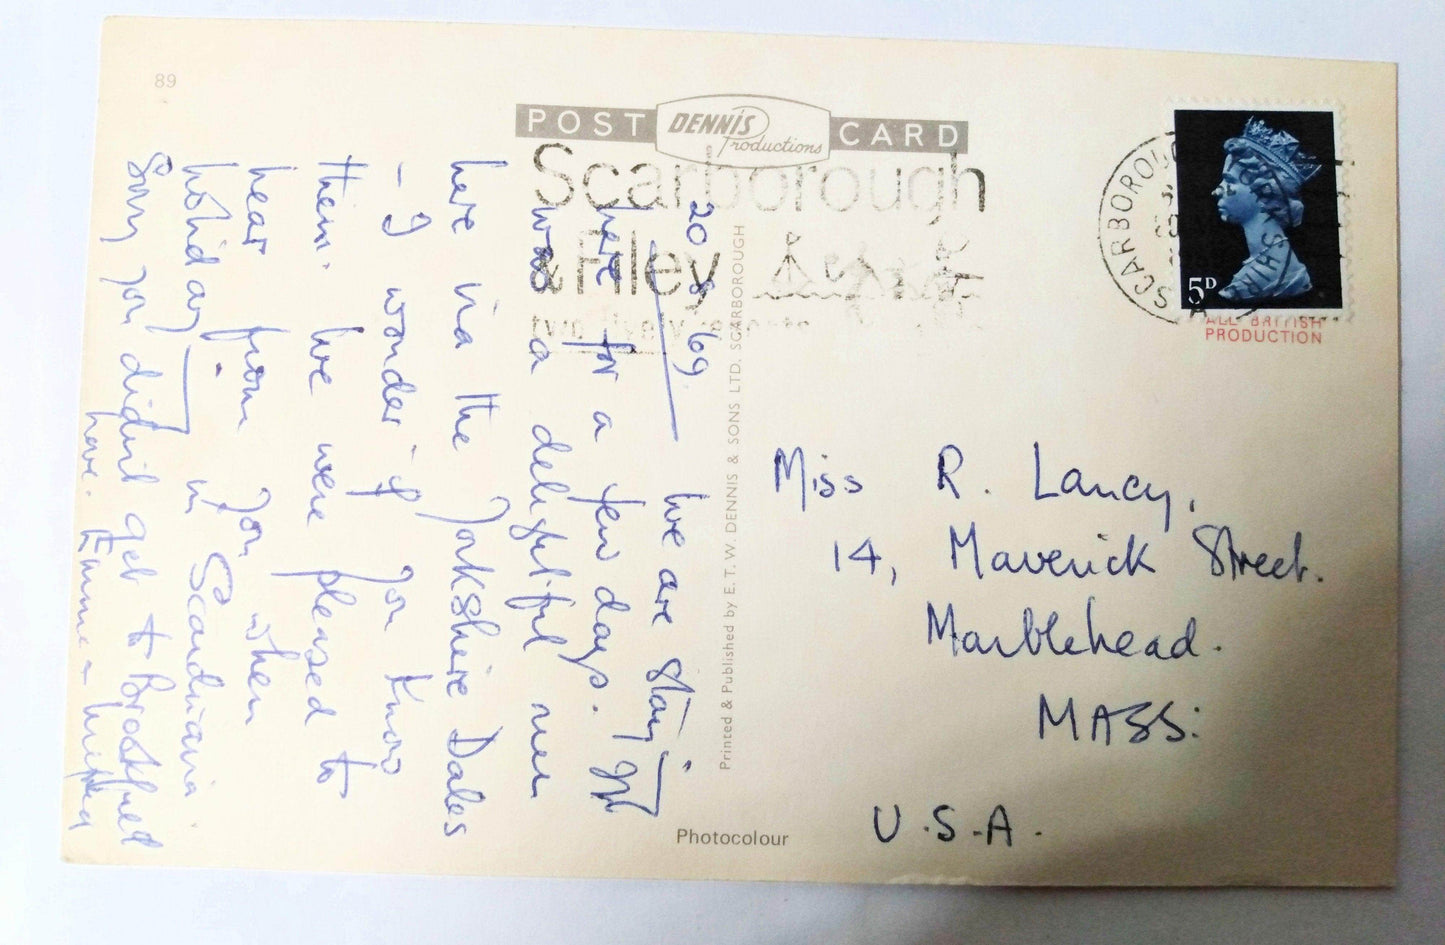 89
POST DENNIS Productions CARD
Scarborough
& Filey
SCARBOROUGH
YORKSHIRE
5D
ALL BRITISH
PRODUCTION
20 8 69.
We are staying
here for a few days. It
was a delightful run
here via the Yorkshire Dales
- I wonder if you know
them. We were pleased to
hear from you when
holidaying in Scandinavia
Sorry you didn't get to
here.
Printed & Published by E. T. W. DENNIS & SONS LTD. SCARBOROUGH
Photocolour
Miss R. Lancy,
14, Maverick Street.
Marblehead.
MASS:
U.S.A.